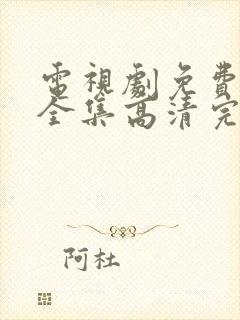 電視劇免費
全集高清完
阿杜